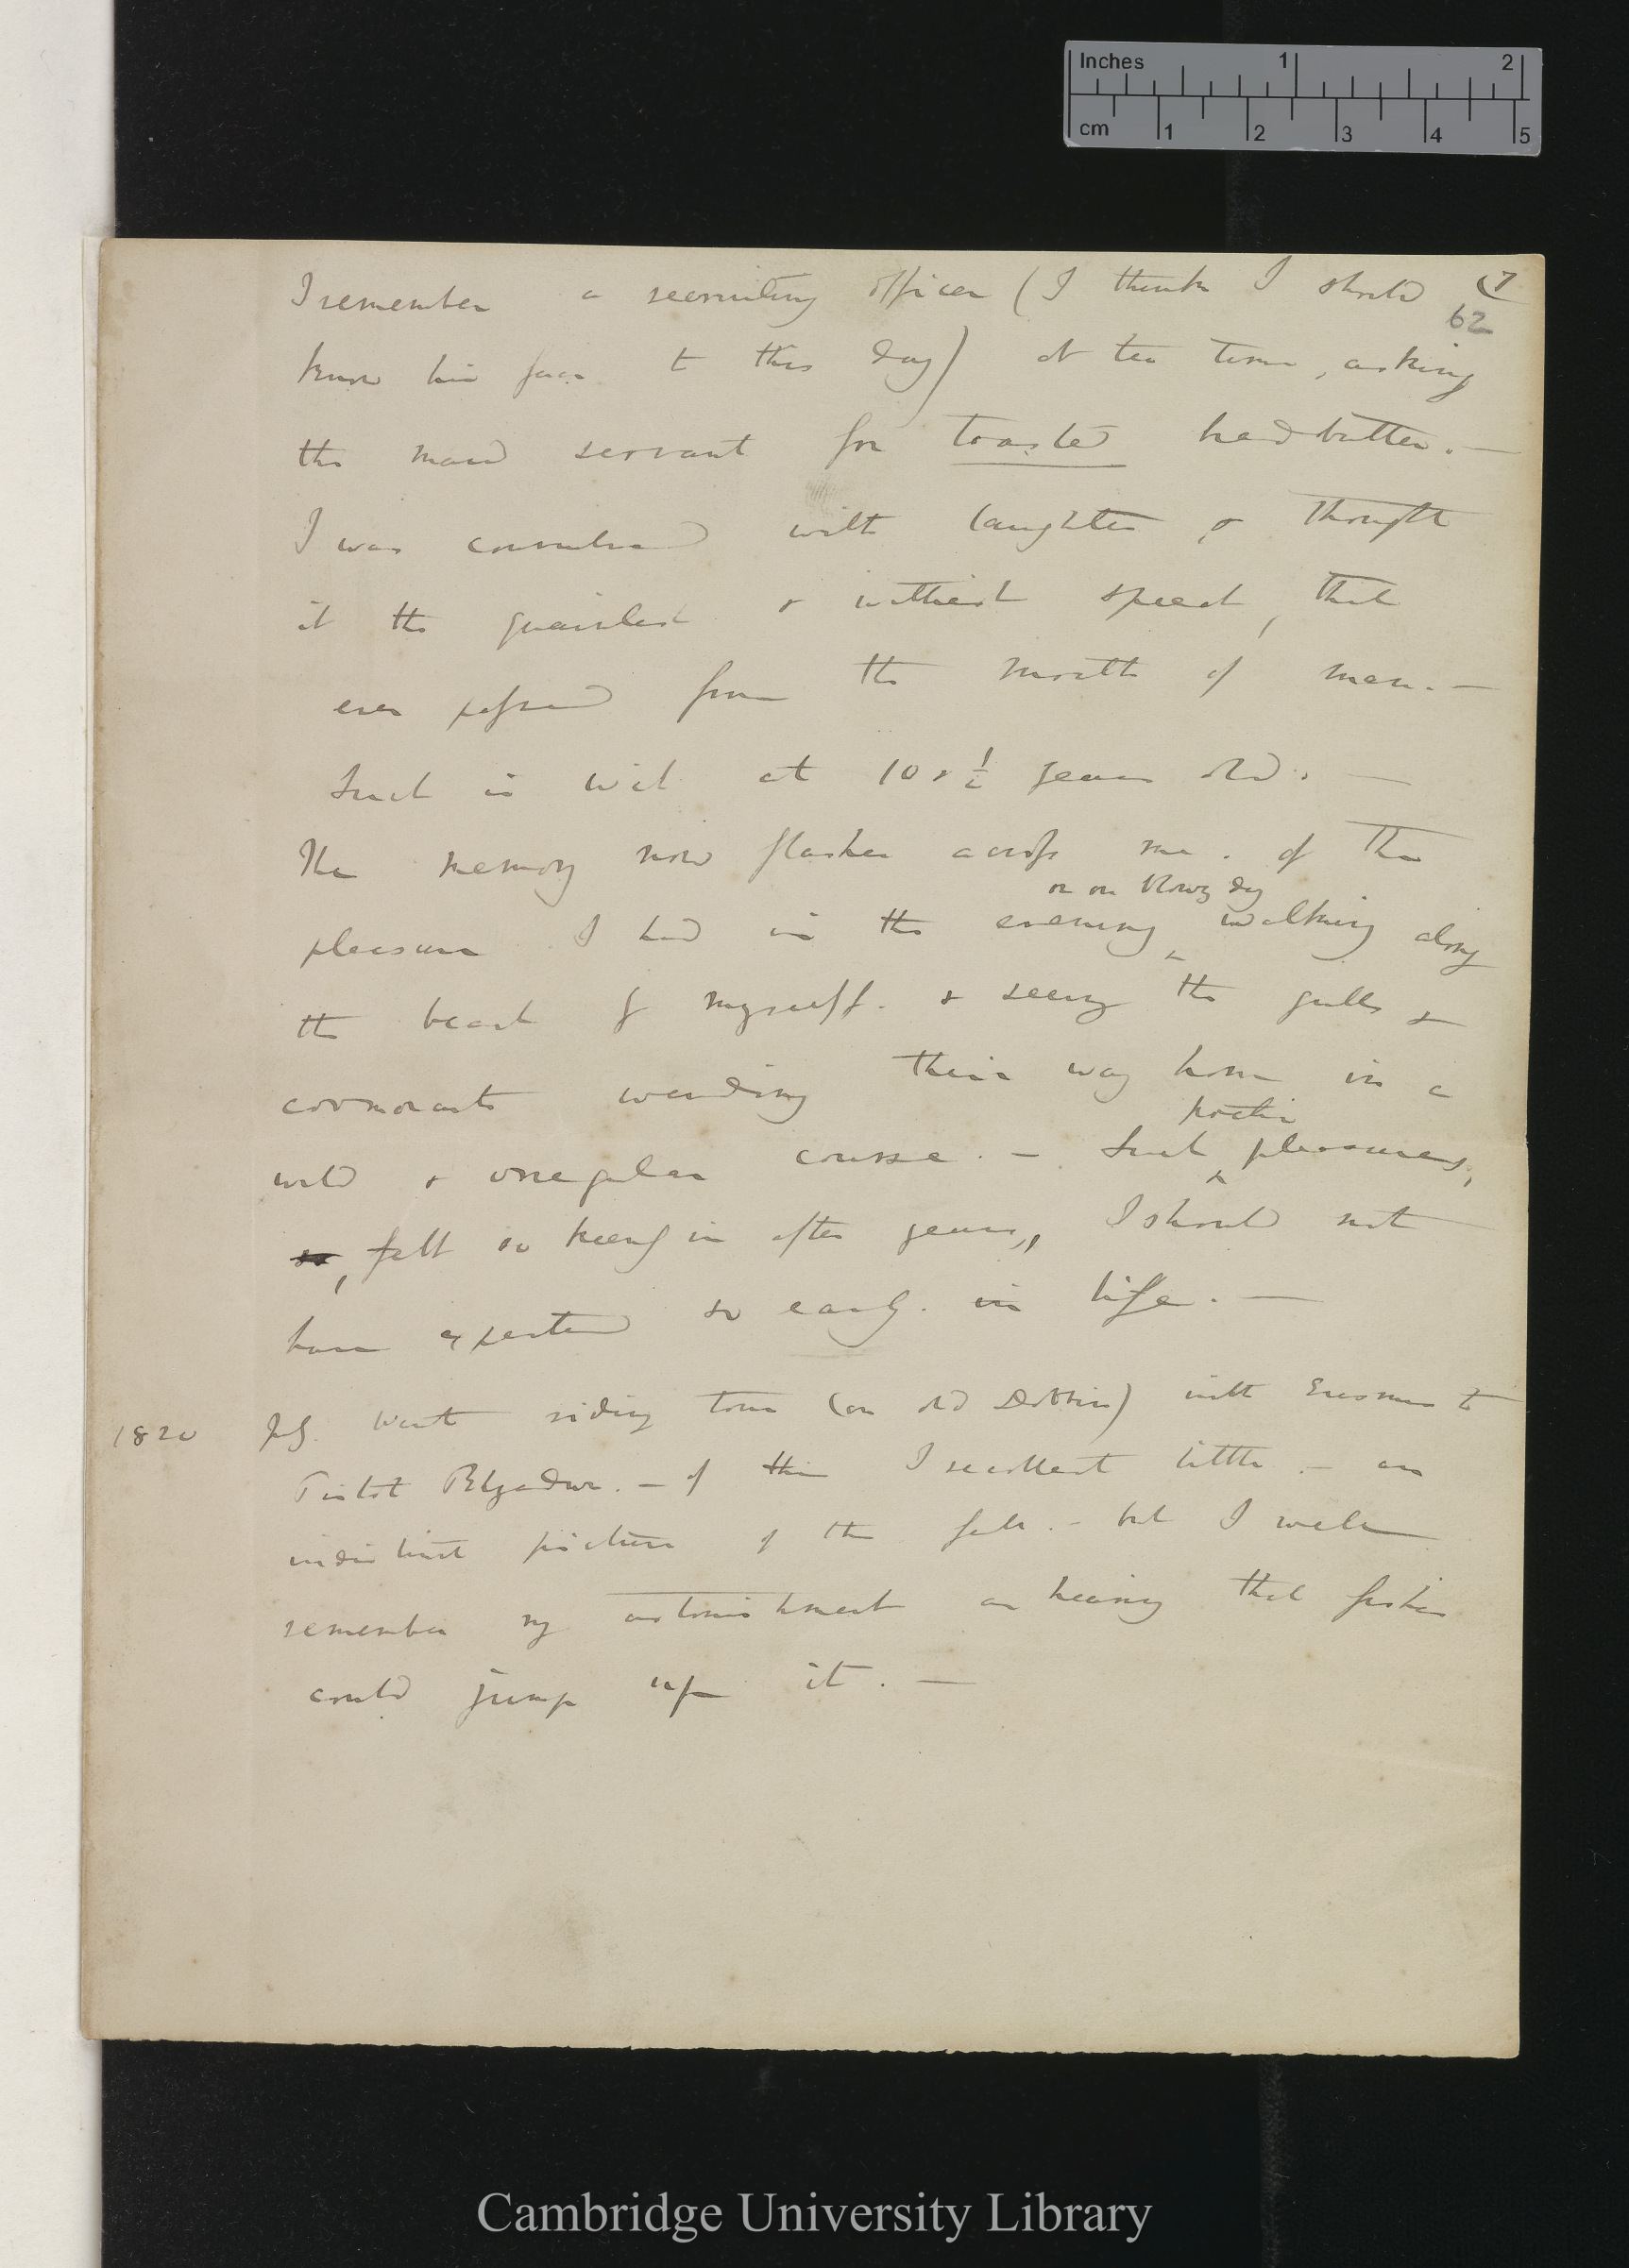 Inches 1 2
cm 1 2 3 4 5
I remember a recruiting officer (I think I should (7
62
know his face to this day) at tea time, asking
the maid servant for toasted bread butter. —
I was convulsed with laughter & thought
it the quaintest & wittiest speech, that
ever passed from the mouth of man. —
Such is wit at 10 & ½ years old. —
The memory now flashes across me. of the
or on blowy day
pleasure I had in the evening walking along
the beach by myself. & seeing the gulls &
cormorants wending their way home in a
poetic
wild & irregular course. — Such pleasures,
so, felt so keenly in after years, I should not
have expected so early in life. —
1820 July. Went riding tour (on old Dobbin) with Erasmus to
Pistol Rhyadwr. — of this I recollect little. — an
indistinct picture of the fall. — but I well
remember my astonishment on hearing that fishes
could jump up it. —
Cambridge University Library